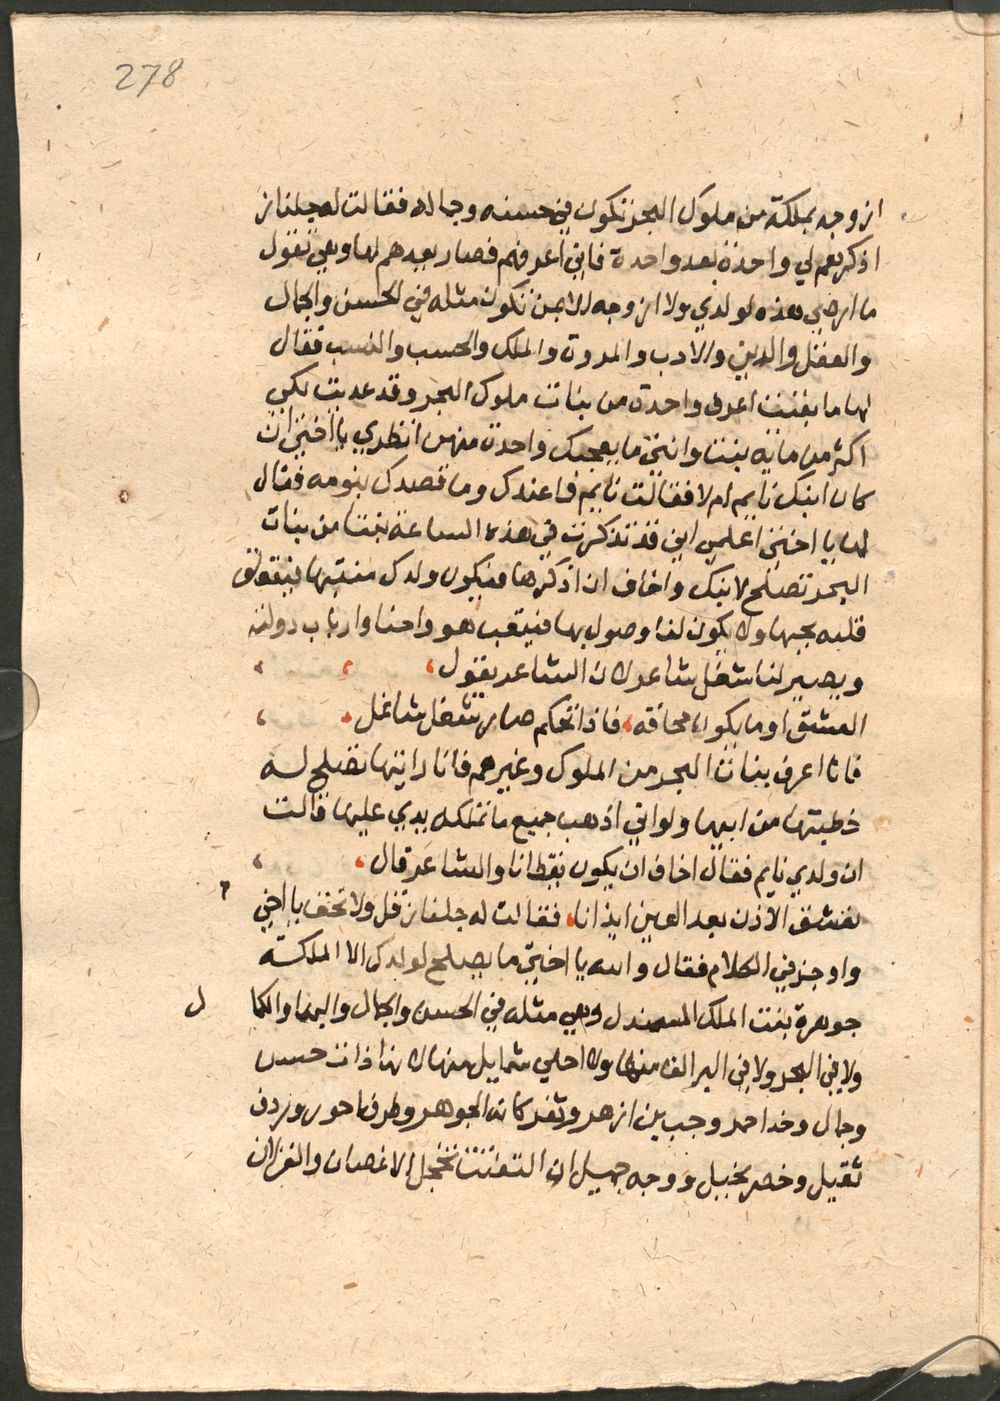 278
ازوجه بملكة من ملوك البحر تكون في حسنه وجماله فقالت له جلناز
اذكرهم لي واحدة بعد واحدة فاني اعرفهم فصار يعدهم لها وهي تقول
ما ارضي هذه لولدي ولا ازوجه الا بمن تكون مثله في الحسن والجمال
والعقل والدين والادب والمروة والملك والحسب والنسب فقال
لها ما بقيت اعرف واحدة من بنات ملوك البحر وقد عديت لكي
اكثر من ماية بنت وانتي ما يعجبك واحدة منهن انظري يا اختي ان
كان ابنك نايم ام لا فقالت نايم فما عندك وما قصدك بنومه فقال
لها يا اختي اعلمي اني قد تذكرت في هذه الساعة بنتا من بنات
البحر تصلح لابنك واخاف ان اذكرها فيكون ولدك منتبها فيتعلق
قلبه بحبها ولا يكون لنا وصول بها فيتعب هو واحنا وارباب دولته
ويصير لنا شغل شاعر لان الشاعر يقول
العشق اوما يكون مجاقه فاذا تحكم صار شغل شاغل
فانا اعرف بنات البحر من الملوك وغيرهم فانا رايتها تصلح له
خطبتها من ابيها ولو اني اذهب جميع ما تملكه يدي عليها قالت
ان ولدي نايم فقال اخاف ان يكون يقظانا والشاعر قال
تعشق الاذن بعد العين ايذانا فقالت له جلناز قل ولا تخف يا اخي
واوجز في الكلام فقال والله يا اختي ما يصلح لولدك الا الملكة
جوهرة بنت الملك السمندل وهي مثله في الحسن والجمال والبها والكما
ل
ولا في البحر ولا في البر الف منها ولا احلي شمايل منها لانها ذات حسن
وجمال وخد احمر وجبين ازهر وثغر كانه الجوهر وطرف احور وردف
ثقيل وخصر نحيل ووجه جميل ان التفتت تخجل الاغصان والغزلان